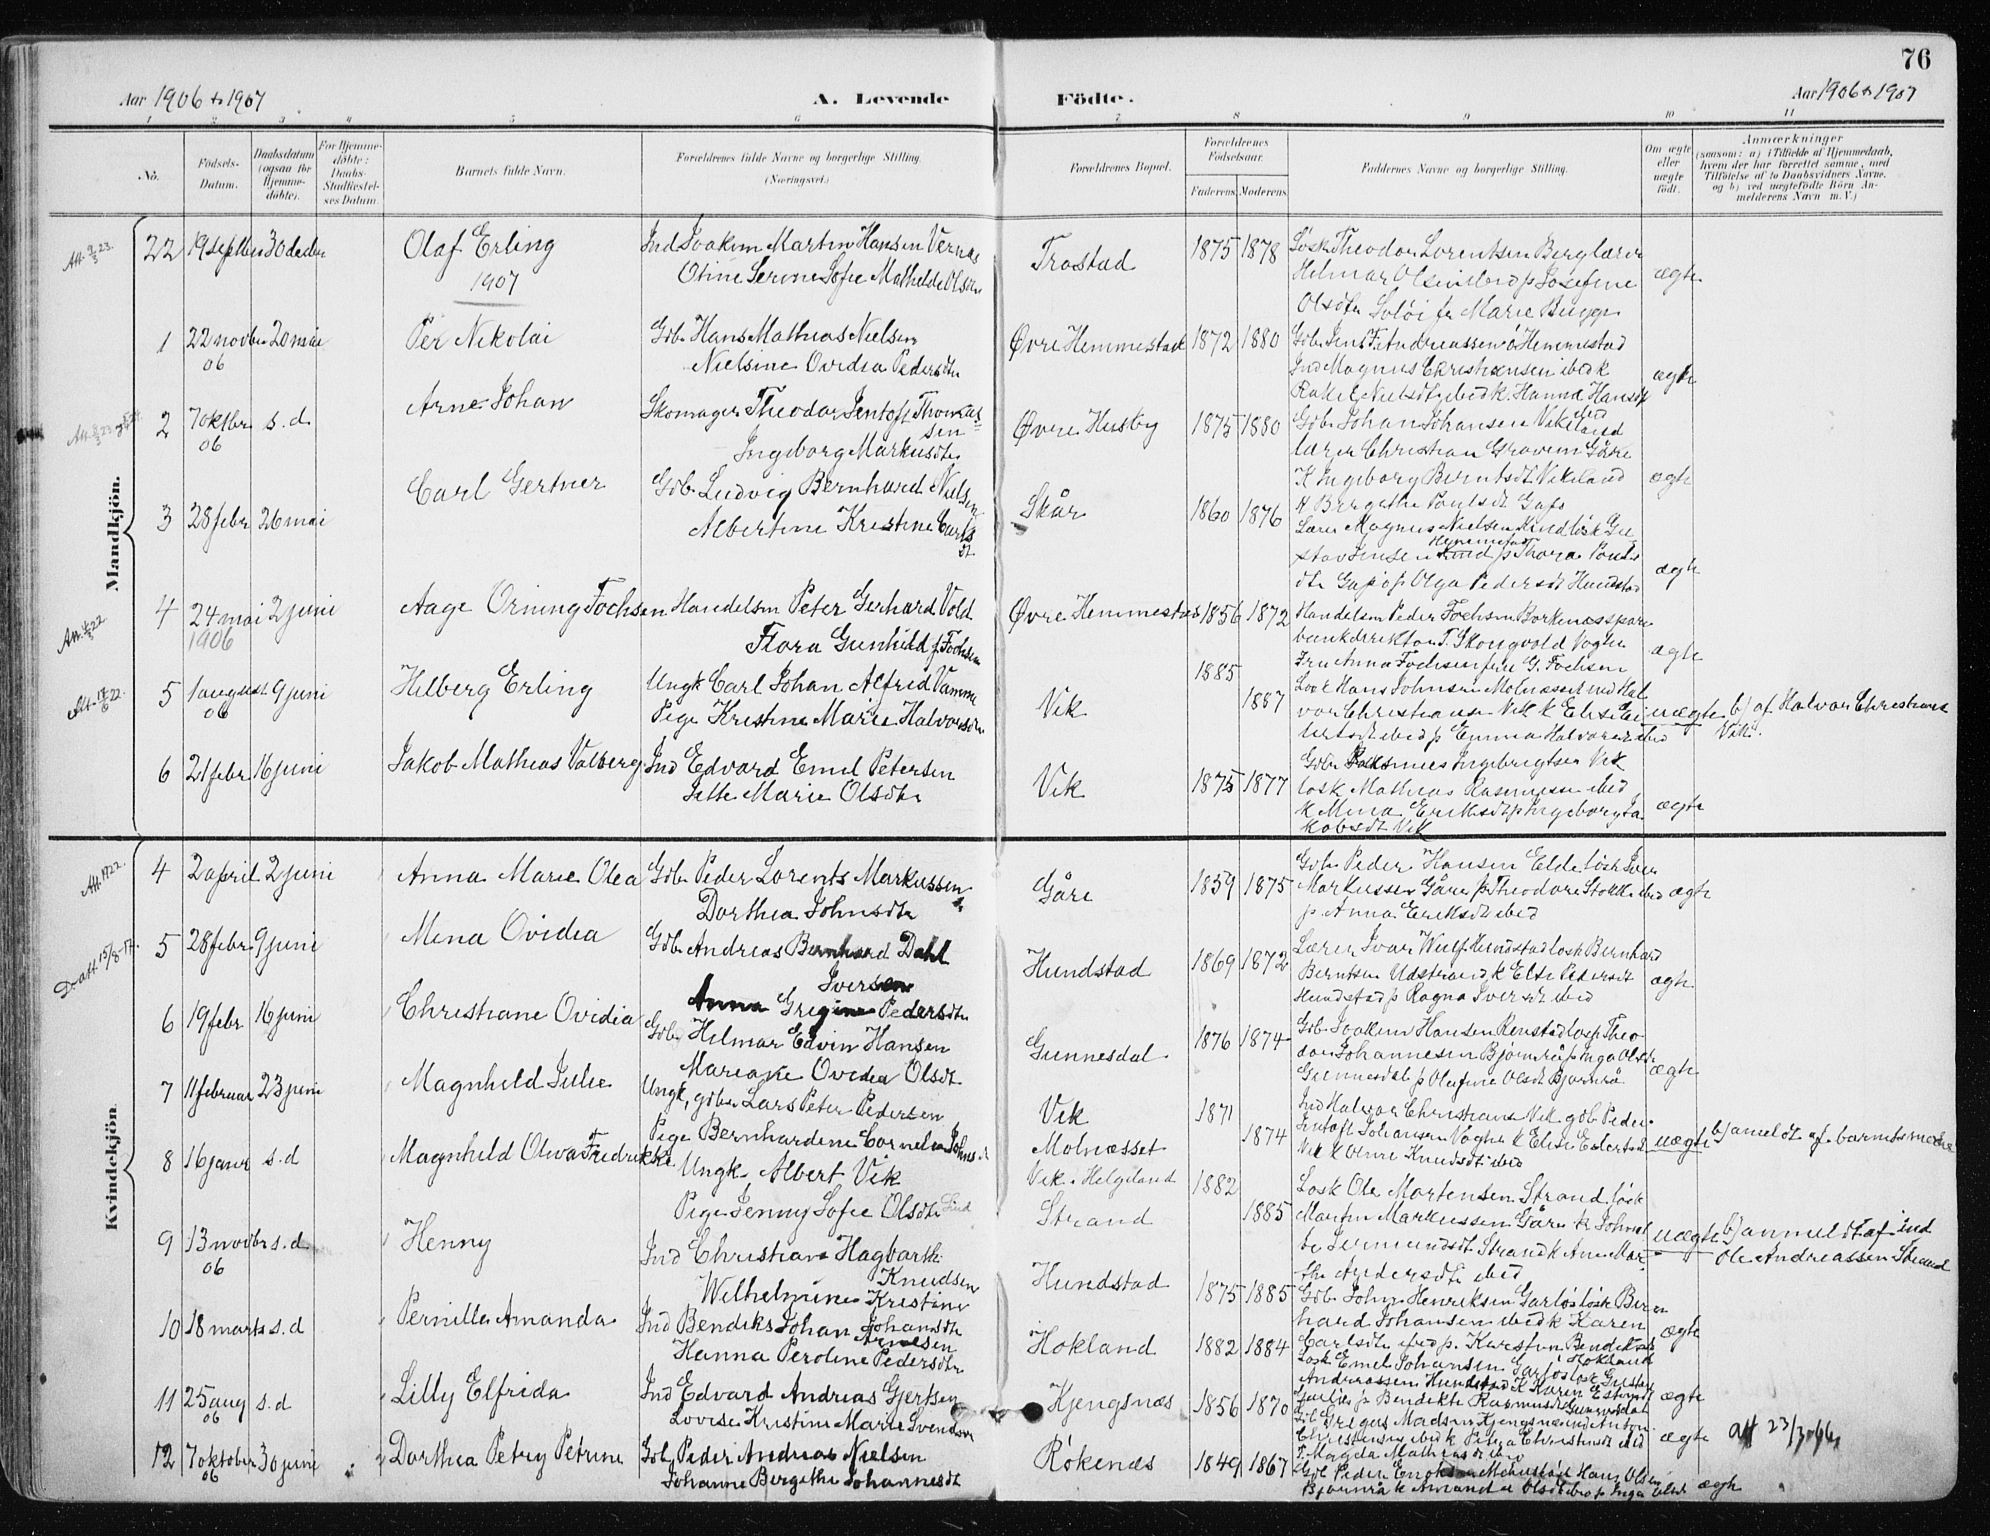 76
Aar 1906 & 1907
A. Levende Födte.
Aar 1906 & 1907
1 2 3 4 5 6 7 8 9 10 11
No.
Födsels-Datum.
Daabsdatum (ogsaa for Hjemme-döbte).
For Hjemme-döbte: Daabs-Stadfæstel-ses Datum.
Barnets fulde Navn.
Forældrenes fulde Navne og borgerlige Stilling.
(Næringsvei.)
Forældrenes Bopæl.
Forældrenes Födselsaar.
Faderens. Moderens.
Faddernes Navne og borgerlige Stilling.
Om ægte eller uægte födt.
Anmærkninger
(saasom: a) i Tilfælde af Hjemmedaab, hvem der har forrettet samme, med Tilföielse af to Daabsvidners Navne, og b) ved uægtefödte Börn Anmelderens Navn m. V.)
Mandkjön.
22 19 septbr 30 decbr Olaf Erling Ind Joakim Martin Hansen Vernes
Otine Serine Sofie Mathilde Olsdtr Trastad 1875 1878 Løsk Theodor Lorentsen Berg lærer
Hilmar Olsen ibid p Josefine
Olsdtr fr Marie Bugge ægte
1907
1 22 novbr 06 20 mai Per Nikolai Gdbr Hans Mathias Nielsen
Nielsine Ovidia Pedersdtr Øvre Hemmestad 1872 1880 Gdbr Jens F. Andreassen ø Hemmestad
Ind Magnus Christiansen ibid k
Rakel Nielsdtr ibid k. Hanna Hansdtr ibid ægte
2 7 oktbr 06 s.d Arne Johan Skomager Theodor Jentoft Thomassen
Ingeborg Markusdtr Øvre Husby 1875 1880 Gdbr Johan Johansen Vikeland
lærer Christian Gåre
K Ingeborg Berntsdt Vikeland ægte
3 28 febr 26 mai Carl Gertner Gdbr Ludvig Bernhard Nielsen
Albertine Kristine Carlsdt Skår 1860 1876 Lærer Magnus Nielsen løsk Gustav
Jensen Hemmestad p Thora Pouls
dtr p Olga Pedersdt Hundstad ægte
4 24 mai 1906 2 juni Aage Orning Fochsen Handelsm Peter Gerhard Vold
Flora Gunhild f. Fochsen Øvre Hemmestad 1856 1872 Handelsm Peder Fochsen Borkenæs spare
bankdirektør T. Skougvold Vogtn
Fru Anna Fochsen G. Fochsen ægte
5 1 august 06 9 juni Hilberg Erling Ungk Carl Johan Alfred Vamme
Pige Kristine Marie Halvorsdtr Vik 1885 1887 Hans Johnsen Molnæsset ind Hal
vor Christiansen Vik k Elise
ibid p Emma Halvorsdt ibid uægte b) af Halvor Christians
Vik.
6 21 febr 16 juni Jakob Mathias Valberg Ind Edvard Emil Petersen
Jette Marie Olsdtr Vik 1875 1877 Gdbr Rasmus Ingebrigtsen Vik
løsk Mathias Rasmussen ibid
k Mina Eriksdt p Ingeborg Ja
kobsdt Vik ægte
Kvindekjön.
4 2 april 2 juni Anna Marie Olea Gdbr Peder Lorents Markussen
Dorthea Johnsdtr Gåre 1859 1875 Gdbr Peder Hansen Elde løsk
Markussen Gåre p Theodore ibid
p Anna Eriksdt ibid ægte
5 28 febr 9 juni Mina Ovidia Gdbr Andreas Bernhard Dahl
Iversen
Anna Gregine Pedersdtr Hundstad 1869 1872 Lærer Ivar Wulf Hundstad løsk Bernhard
Berntsen Udstrand k Else Pedersdt
Hundstad p Ragna Iversdt ibid ægte
6 19 febr 16 juni Christiane Ovidia Gdbr Hilmar Edvin Hansen
Mariane Ovidia Olsdt Gunnesdal 1876 1874 Gdbr Joakim Hansen Renstad løsk Theo
dor Johannesen Bjørnrå p Inga Olsdtr
Gunnesdal p Olufine Olsdt Bjørnrå ægte
7 11 februar 23 juni Magnhild Julie Ungk, gdbr Lars Peter Pedersen
Pige Bernhardine Cornelia Johnsdt Vik
Molnæsset 1871 1874 Ind Halvor Christians Vik gdbr Peder
Jentoft Johansen Vogtn k Elise
Vik k Knudsdt ibid uægte b) anmeldt af barnets moder
8 16 januar s.d Magnhild Oliva Fredrikke Ungk Albert Vik
Pige Jenny Sofie Olsdtr Lind Vik i Helgeland
Strand 1882 1885 Løsk Ole Mortensen Strand løsk
Martin Markussen Gåre k
Strand k Ane Mar
the Andersdtr ibid uægte b) anmeldt af ind
Ole Andreassen Strand
9 13 novbr 06 s.d Henny Ind Christian Hagbart
Knudsen
Wilhelmine Kristine
Johansdtr Hundstad 1875 1885 Gdbr John Henriksen løsk Bern
hard Johansen ibid k Karen
Carlsdtr ibid p. Karsten ægte
10 18 marts s.d Pernille Amanda Ind Bendiks Johan Arnesen
Hanna Peroline Pedersdtr Hokland 1882 1884 Løsk Emil Johansen løsk Gustav
Andreassen Hundstad K Karen
p Bendikte Rasmusdt Gunnesdal ægte
11 25 aug 06 s.d Lilly Elfrida Ind Edvard Andreas Gjertsen
Lovise Kristine Marie Svendsen Kjengsnæs 1856 1870 Gregus Madsen Kjengsnæs ind Anton
Christensen ibid k Petra Christensdt ibid
Magda Mathiasdt ibid ægte att 23/3-66
12 7 oktober 06 30 juni Dorthea Petry Petrine Gdbr Peder Andreas Nielsen
Johanne Bergithe Johannesdt Røkenæs 1849 1867 Gdbr Peder Hans Olsen
Bjørnrå k Olsdt ibid p Inga Olsdt ægte